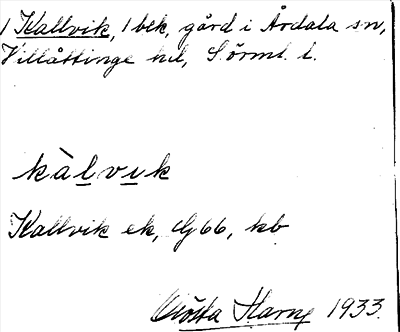 1 Kallvik, 1 btk, gård i Årdala sn,
Villåttinge hd, Sörml. l.
kàlvuk
Kallvik ek, Gj 66, kb
Gösta Harng 1933.